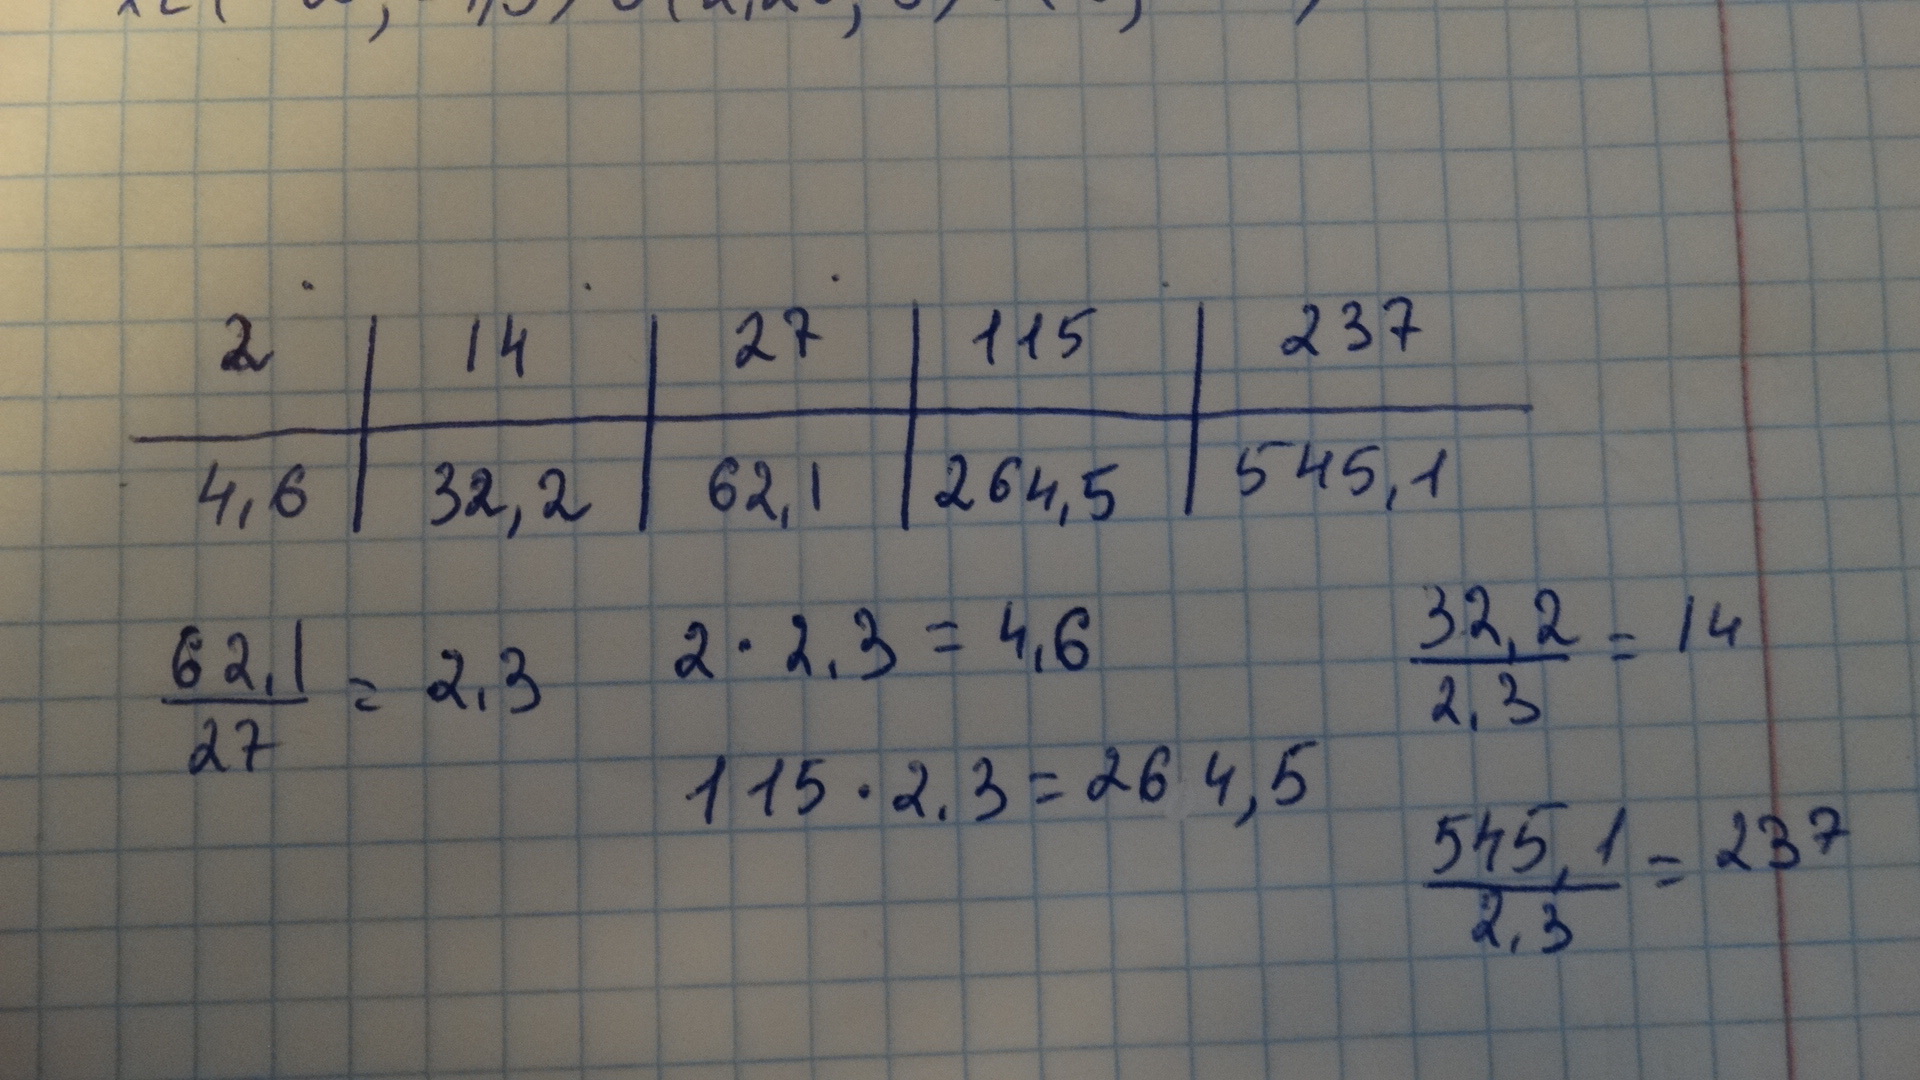 2 | 14 | 27 | 115 | 237
4,6 | 32,2 | 62,1 | 264,5 | 545,1
62,1/27 = 2,3
2 · 2,3 = 4,6
115 · 2,3 = 264,5
32,2/2,3 = 14
545,1/2,3 = 237